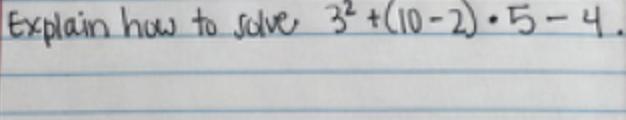 Explain how to solve 3² + (10 - 2) • 5 - 4.